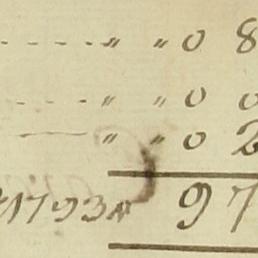 - - - - - " " 0 8
- - - - - " " 0 0
——— " " 0 2
1793 97